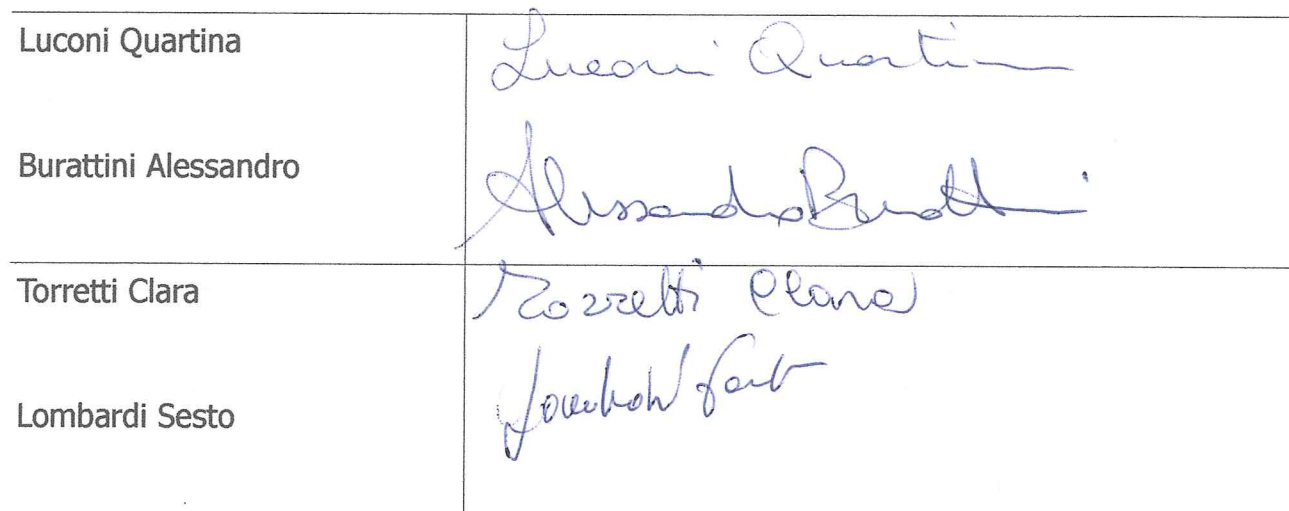 Luconi Quartina
Luconi Quartina
Burattini Alessandro
Alessandro Burattini
Torretti Clara
Torretti Clara
Lombardi Sesto
Lombardi Sesto